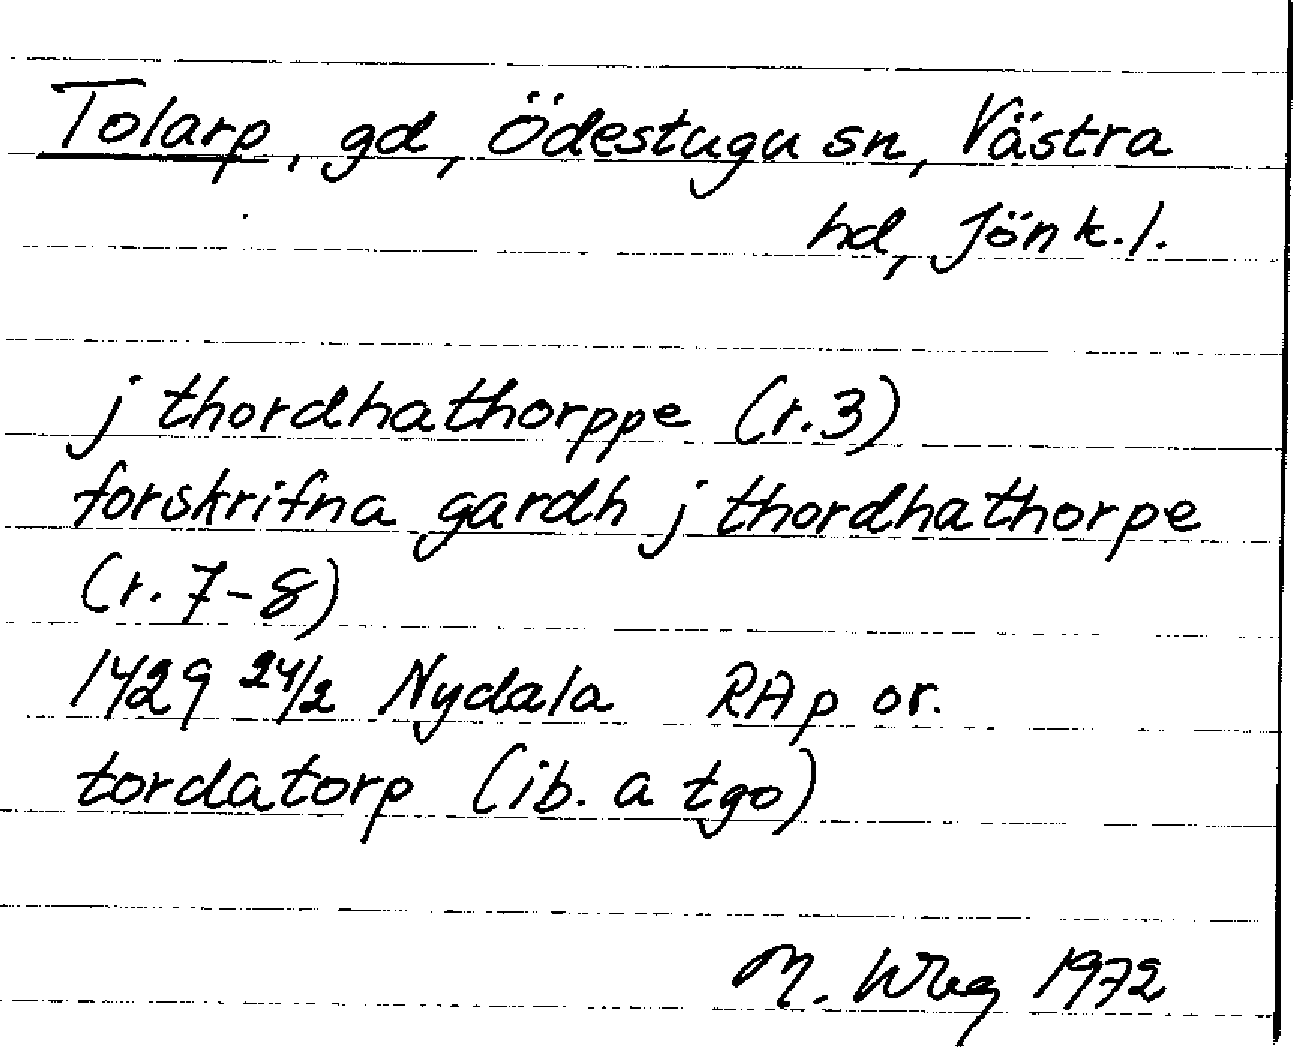 Tolarp, gd, Ödestugu sn, Västra
hd, Jönk.l.
j thordhathorppe (r.3)
forskrifna gardh j thordhathorpe
(r. 7-8)
1429 24/2 Nydala RAp or.
tordatorp (ib. a tgo)
M. Wbg 1972